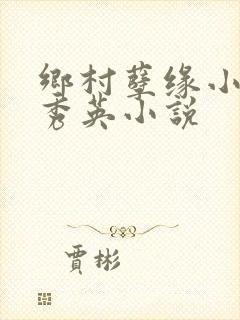 鄉村孽缘小
秀英小說
賈彬